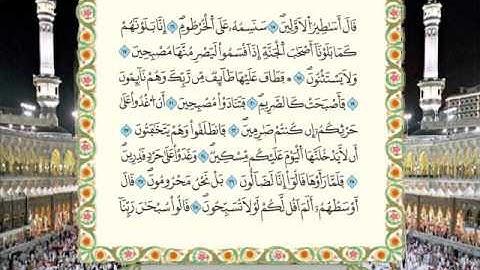 قَالَ أَسَٰطِيرُ اُ۬لَاوَّلِينَۖ ١٥ سَنَسِمُهُۥ عَلَى اَ۬لْخُرْطُومِۖ ١٦ إِنَّا بَلَوْنَٰهُمْ
كَمَا بَلَوْنَآ أَصْحَٰبَ اَ۬لْجَنَّةِ إِذَ اَقْسَمُواْ لَيَصْرِمُنَّهَا مُصْبِحِينَ ١٧
وَلَا يَسْتَثْنُونَۖ ١٨ فَطَافَ عَلَيْهَا طَآئِفٞ مِّن رَّبِّكَ وَهُمْ نَآئِمُونَ ١٩
فَأَصْبَحَتْ كَالصَّرِيمِۖ ٢٠ فَتَنَادَوْاْ مُصْبِحِينَ ٢١ أَنُ اُ۟غْدُواْ عَلَىٰ
حَرْثِكُمُۥٓ إِن كُنتُمْ صَٰرِمِينَۖ ٢٢ فَانطَلَقُواْ وَهُمْ يَتَخَٰفَتُونَ ٢٣
أَن لَّا يَدْخُلَنَّهَا اَ۬لْيَوْمَ عَلَيْكُم مِّسْكِينٞۖ ٢٤ وَغَدَوْاْ عَلَىٰ حَرْدٖ قَٰدِرِينَۖ ٢٥
فَلَمَّا رَأَوْهَا قَالُوٓاْ إِنَّا لَضَآلُّونَ ٢٦ بَلْ نَحْنُ مَحْرُومُونَۖ ٢٧ قَالَ
أَوْسَطُهُمُۥٓ أَلَمَ اَقُل لَّكُمْ لَوْلَا تُسَبِّحُونَۖ ٢٨ قَالُواْ سُبْحَٰنَ رَبِّنَآ